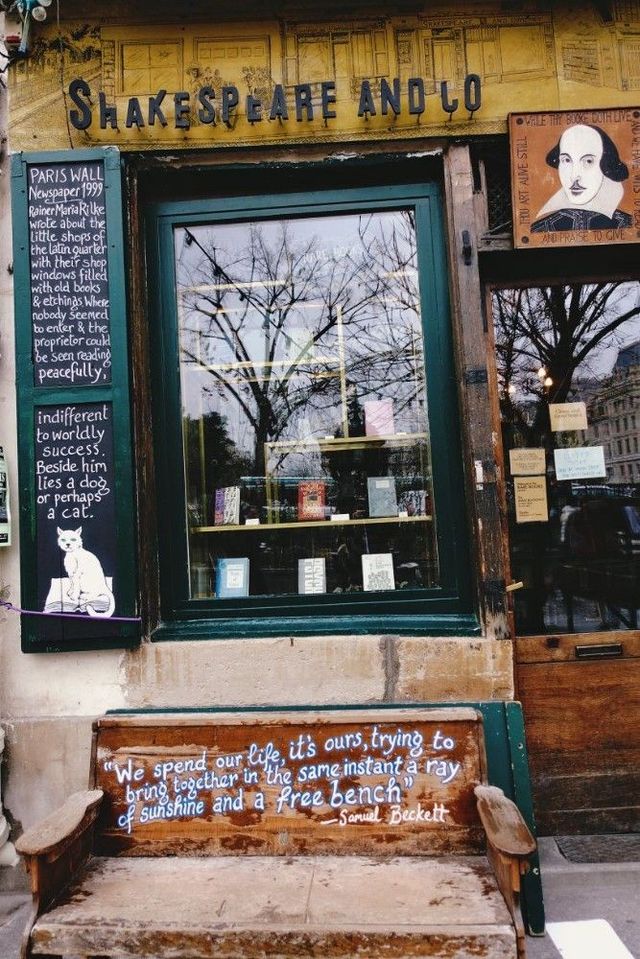 SHAKESPEARE AND CO
PARIS WALL
Newspaper 1999
Rainer Maria Rilke
wrote about the
little shops of
the latin quarter
with their shop
windows filled
with old books
& etchings where
nobody seemed
to enter & the
proprietor could
be seen reading
peacefully,
indifferent
to worldly
success.
Beside him
lies a dog
or perhaps
a cat.
THOU ART ALIVE STILL
WHILE THY BOOKE DOTH LIVE
AND PRAISE TO GIVE
"We spend our life, it's ours, trying to
bring together in the same instant a ray
of sunshine and a free bench"
—Samuel Beckett